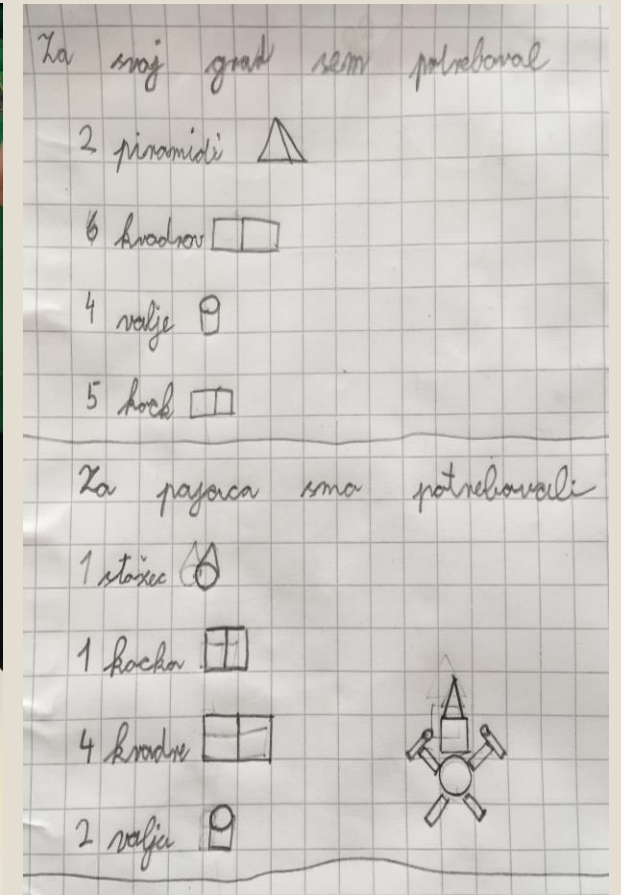 Za svoj grad sem potreboval
2 piramidi
6 kvadrov
4 valje
5 kock
Za pajaca smo potrebovali
1 stožec
1 kocka
4 kvadre
2 valja